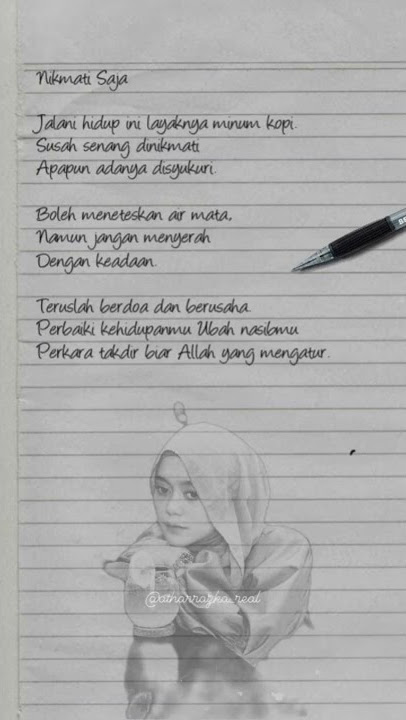 Nikmati Saja
Jalani hidup ini layaknya minum kopi.
Susah senang dinikmati
Apapun adanya disyukuri.
Boleh meneteskan air mata,
Namun jangan menyerah
Dengan keadaan.
Teruslah berdoa dan berusaha.
Perbaiki kehidupanmu Ubah nasibmu
Perkara takdir biar Allah yang mengatur.
@atharrazka_real